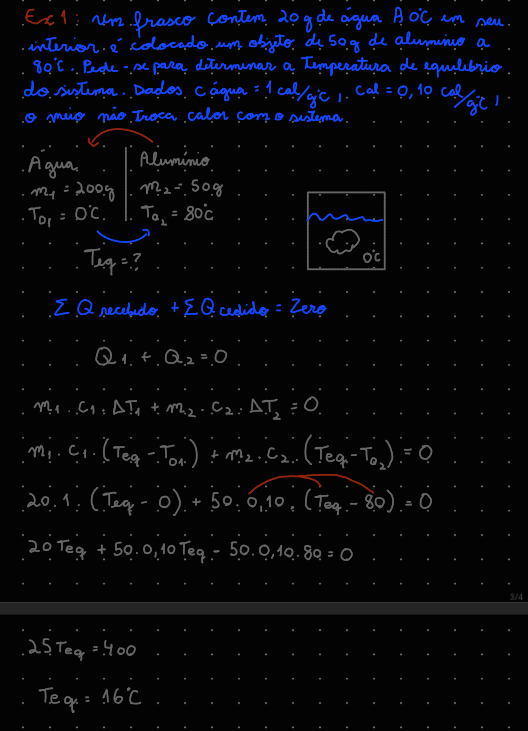 Ex 1: Um frasco contem 20g de água A 0°C em seu
interior é colocado um objeto de 50g de aluminio a
80°C. Pede-se para determinar a Temperatura de equilíbrio
do sistema. Dados c água = 1 cal/g°C, cal = 0,10 cal/g°C,
o meio não Troca calor com o sistema.
Água
Alumínio
m₁ = 200g
m₂ = 50g
T₀₁ = 0°C
T₀₂ = 80°C
Teq = ?
0°C
Σ Q recebido + Σ Q cedido = Zero
Q₁ + Q₂ = 0
m₁ . c₁ . ΔT₁ + m₂ . c₂ . ΔT₂ = 0
m₁ . c₁ . (Teq - T₀₁) + m₂ . c₂ . (Teq - T₀₂) = 0
20 . 1 . (Teq - 0) + 50 . 0,10 . (Teq - 80) = 0
20 Teq + 50 . 0,10 Teq - 50 . 0,10 . 80 = 0
3/4
25 Teq = 400
Teq = 16°C